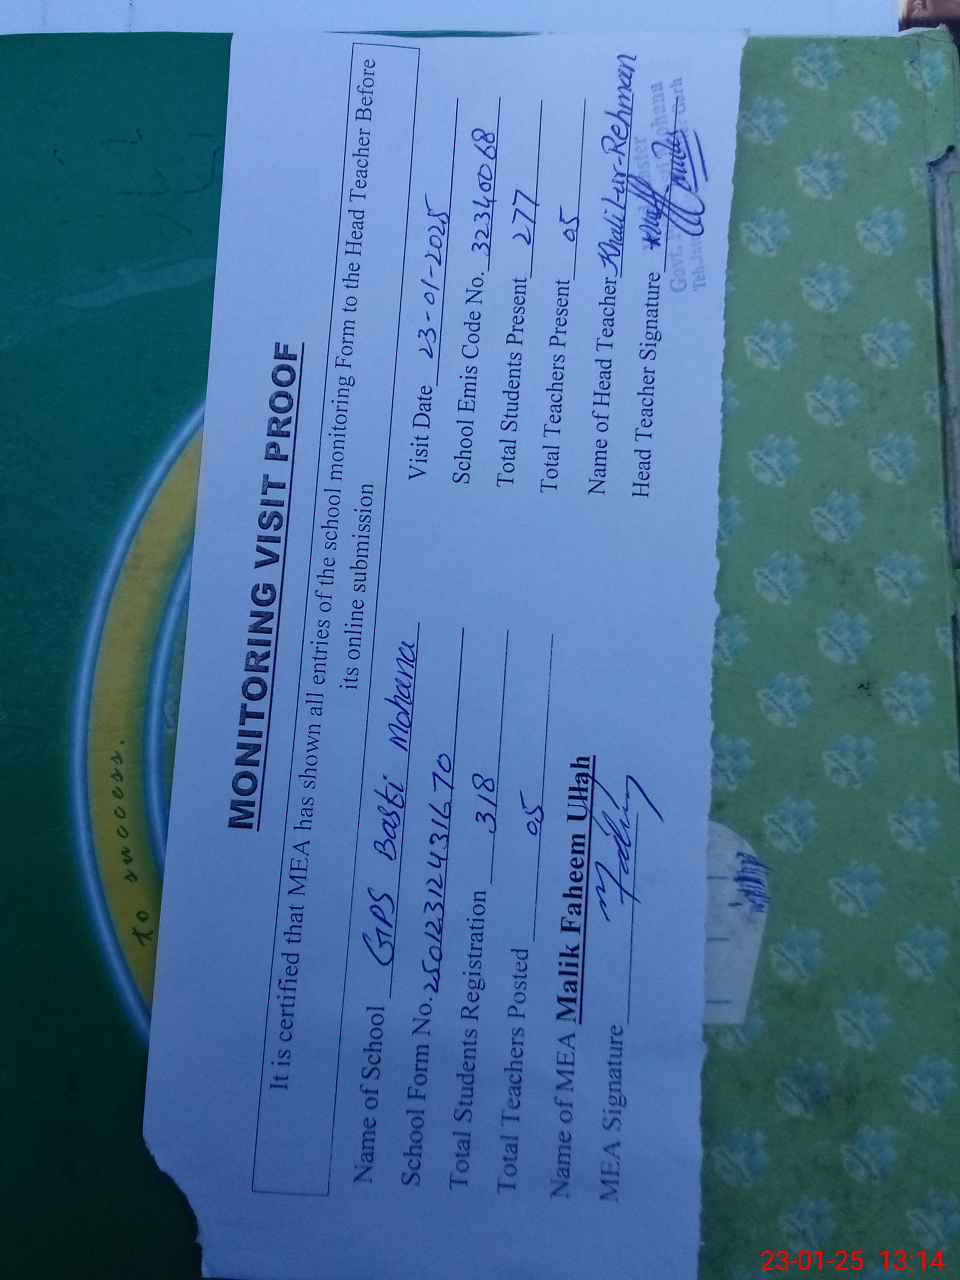 to success.
MONITORING VISIT PROOF
It is certified that MEA has shown all entries of the school monitoring Form to the Head Teacher Before
its online submission
Name of School GPS Basti Mohana
Visit Date 23-01-2025
School Form No. 25012312431670
School Emis Code No. 32340068
Total Students Registration 318
Total Students Present 277
Total Teachers Posted 05
Total Teachers Present 05
Name of MEA Malik Faheem Ullah
Name of Head Teacher Khalil-ur-Rehman
MEA Signature
Head Teacher Signature
Govt.
Mohana
Garh
23-01-25 13:14